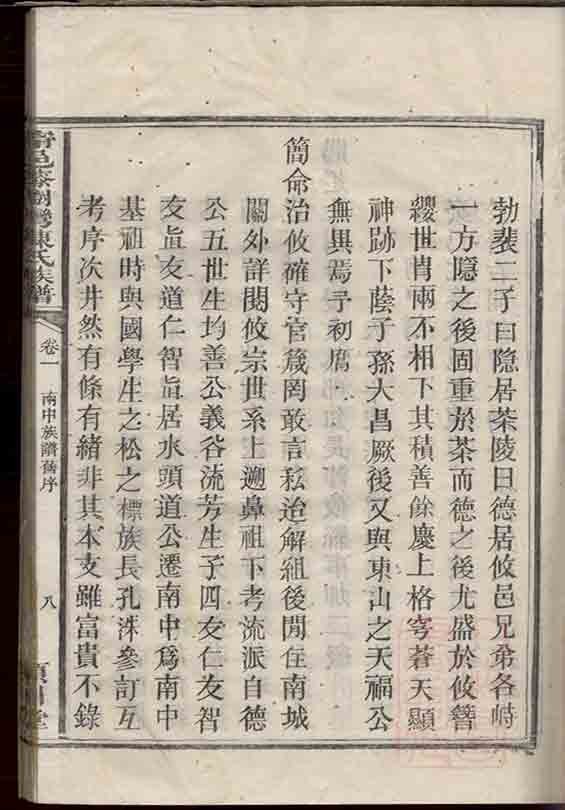 勃裴二子曰隐居茶陵曰德居攸邑兄弟各峙
一方隱之後固重於茶而德之後尤盛於攸簪
纓世胄兩不相下其積善餘慶上格穹蒼天顯
神跡下蔭子孫大昌厥後又與東山之天福公
無異焉予初膺
簡命治攸確守官箴罔敢言私治解組後閒住南城
關外詳閱攸宗世系上遡鼻祖下考流派自德
公五世生均善公義谷流芳生子四友仁友智
友眞友道仁智眞居水頭道公遷南中爲南中
基祖時與國學生之松之標族長孔洙參訂互
考序次井然有條有緒非其本支雖富貴不錄
陳氏族譜
卷一
南中族譜舊序
八
堂